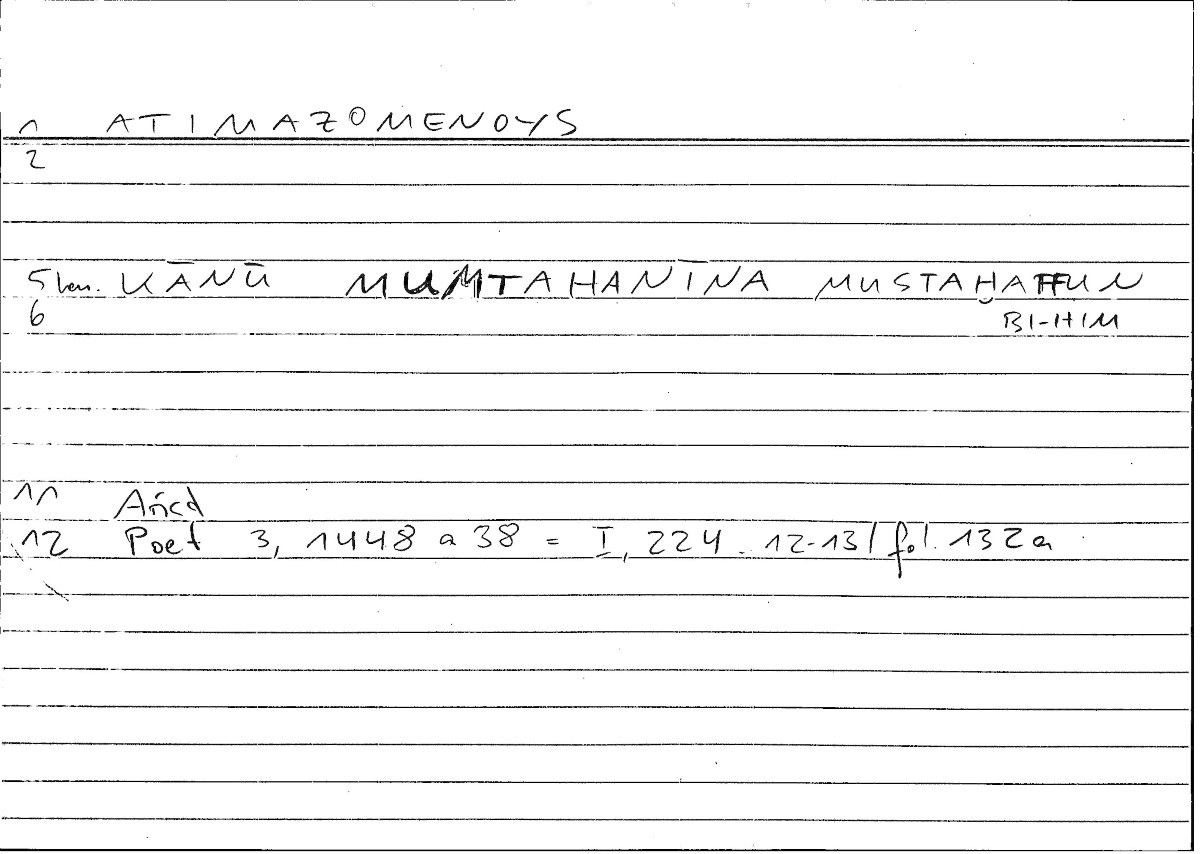 1 ATIMAZOMENOYS
2
5 KĀNŪ MUMTAHANĪNA MUSTAḪAFFUN
6 BI-HIM
11
12 Poet 3, 1448 a 38 = I, 224. 12-13 / fol. 132a